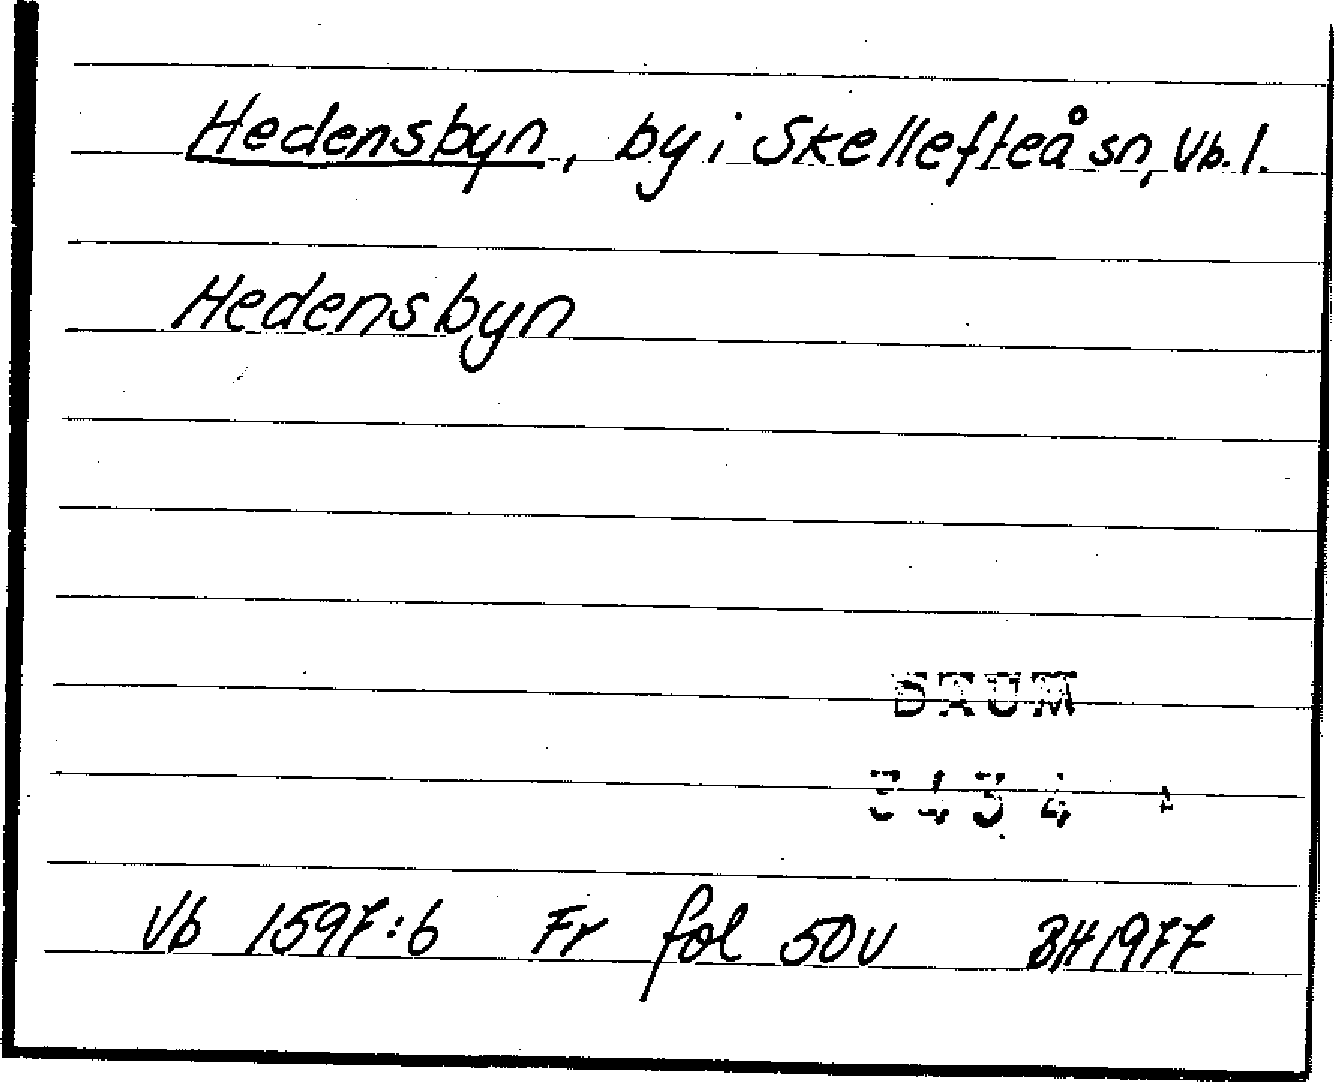 Hedensbyn, by i Skellefteå sn, Vb. l.
Hedensbyn
DAUM
3434
Vb 1597:6 Fr fol 50v BH 1977